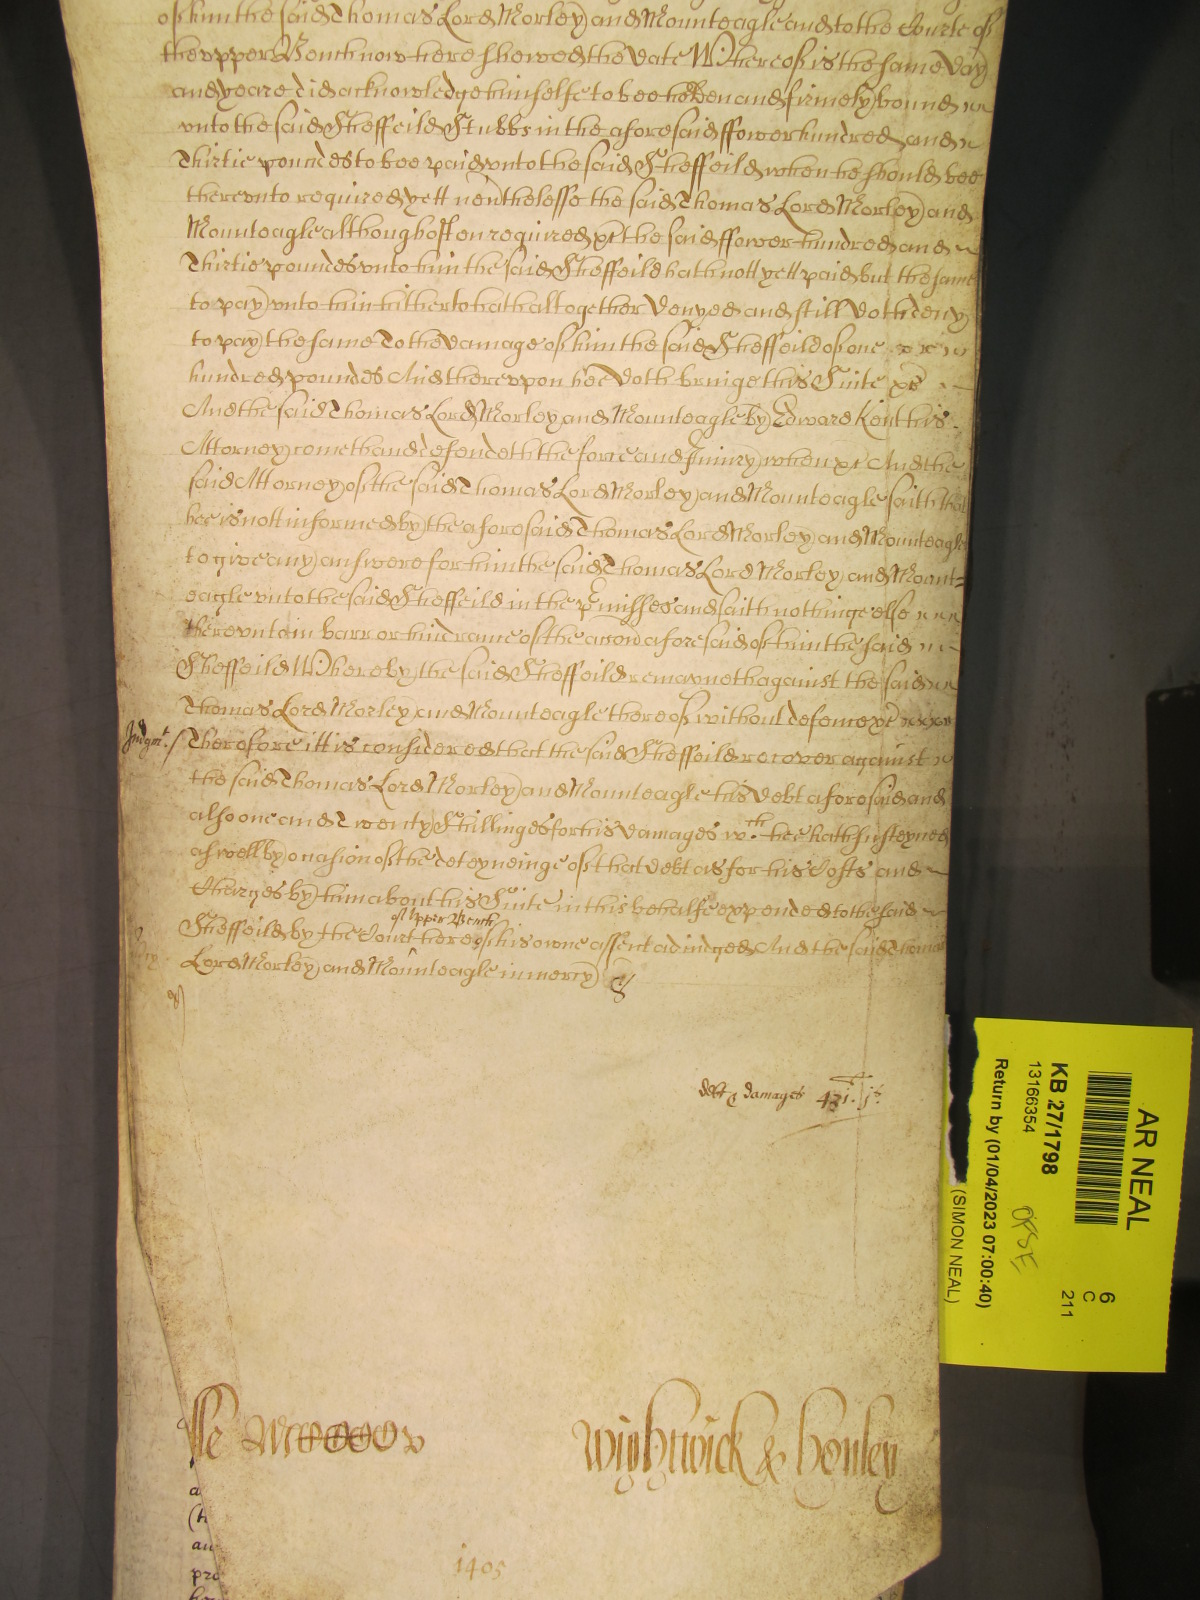 of him the said Thomas Lord Morley and Mounteagle and to the Courte of
the vpper Bench now here shewed the date Whereof is the same day
and yeare did acknowledge himselfe to bee holden and firmely bound
vnto the said Sheffeild Stubbs in the aforesaid ffower hundred and
Thirtie poundes to bee paid vnto the said Sheffeild when he should bee
therevnto required yett nevthelesse the said Thomas Lord Morley and
Mounteagle although often required &c the said ffower hundred and
Thirtie poundes vnto him the said Sheffeild hath nott yett paid but the same
to pay vnto him hitherto hath altogether denyed and still doth deny
to pay the same To the damage of him the said Sheffeild of one
hundred poundes And therevpon hee doth bringe this Suite &c
And the said Thomas Lord Morley and Mounteagle by Edward Kent his
Attorney cometh and defendeth the force and Iniury when &c And the
said Attorney of the said Thomas Lord Morley and Mounteagle saith that
hee is nott informed by the aforesaid Thomas Lord Morley and Mounteagle
to give any answere for him the said Thomas Lord Morley and Mount=
eagle vnto the said Sheffeild in the pmisses and saith nothinge else
therevnto in barr or hindrance of the accon aforesaid of him the said
Sheffeild Whereby the said Sheffeild remayneth against the said
Thomas Lord Morley and Mounteagle thereof without defence &c
Judgmt. / Therefore itt is considered that the said Sheffeild recover against
the said Thomas Lord Morley and Mounteagle his debt aforesaid and
also one and Twenty Shillinges for his damages wch. hee hath susteyned
aswell by occasion of the deteyneinge of that debt as for his Costs and
Charges by him about his Suite in this behalfe expended to the said
of Vpper Bench
Sheffeild by the Court here of his owne assent adiudged And the said Thomas
Lord Morley and Mounteagle in mercy &c
debt & damages 431. l 1s.
Wightwick & Henley
1405
AR NEAL
6
C
211
KB 27/1798
13166354
Return by (01/04/2023 07:00:40)
(SIMON NEAL)